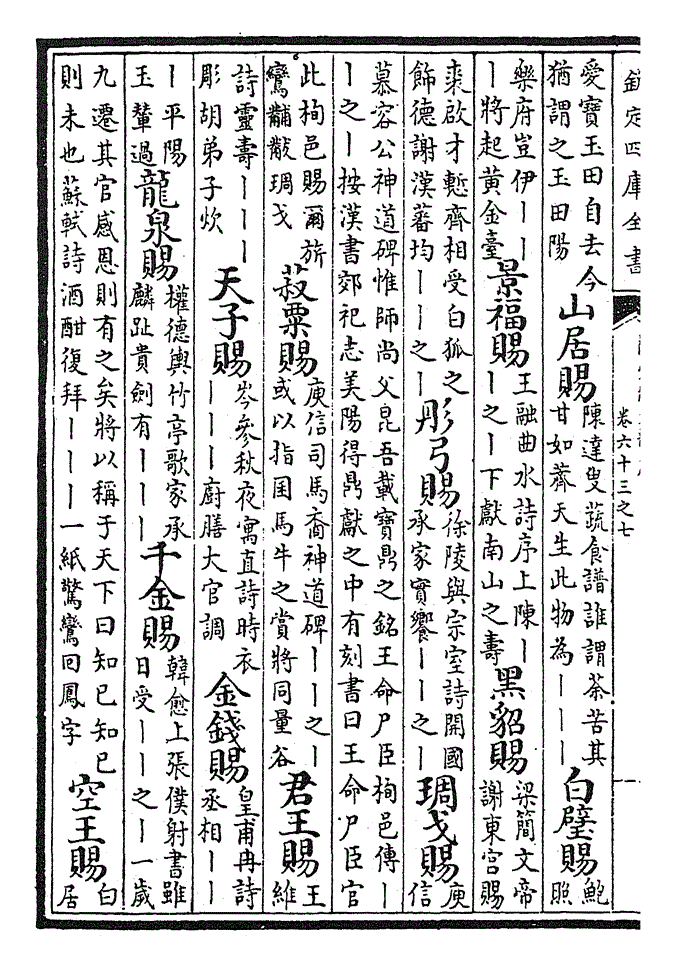 欽定四庫全書
卷六十三之七
愛寶玉田自去今
猶謂之玉田陽
山居賜
陳達叟蔬食譜誰謂荼苦其
甘如薺天生此物為丨丨丨
白璧賜
鮑
照
樂府豈伊丨丨
丨將起黃金臺
景福賜
王融曲水詩序上陳丨
丨之丨下獻南山之壽
黑貂賜
梁簡文帝
謝東宮賜
裘啟才慙齊相受白狐之
飾德謝漢蕃均丨丨之丨
彤弓賜
徐陵與宗室詩開國
承家實饗丨丨之丨
琱戈賜
庾
信
慕容公神道碑惟師尚父昆吾載寶鼎之銘王命尸臣栒邑傳丨
丨之丨按漢書郊祀志美陽得鼎獻之中有刻書曰王命尸臣官
此栒邑賜爾旂
鸞黼黻琱戈
菽粟賜
庾信司馬裔神道碑丨丨之丨
或以指囷馬牛之賞將同量谷
君王賜
王
維
詩靈壽丨丨丨
彫胡弟子炊
天子賜
岑參秋夜寓直詩時衣
丨丨丨廚膳大官調
金錢賜
皇甫冉詩
丞相丨丨
丨平陽
玉輦過
龍泉賜
權德輿竹亭歌家承
麟趾貴劍有丨丨丨
千金賜
韓愈上張僕射書雖
日受丨丨之丨一歲
九遷其官感恩則有之矣將以稱于天下曰知已知已
則未也 蘇軾詩酒酣復拜丨丨丨一紙驚鸞回鳳字
空王賜
白
居